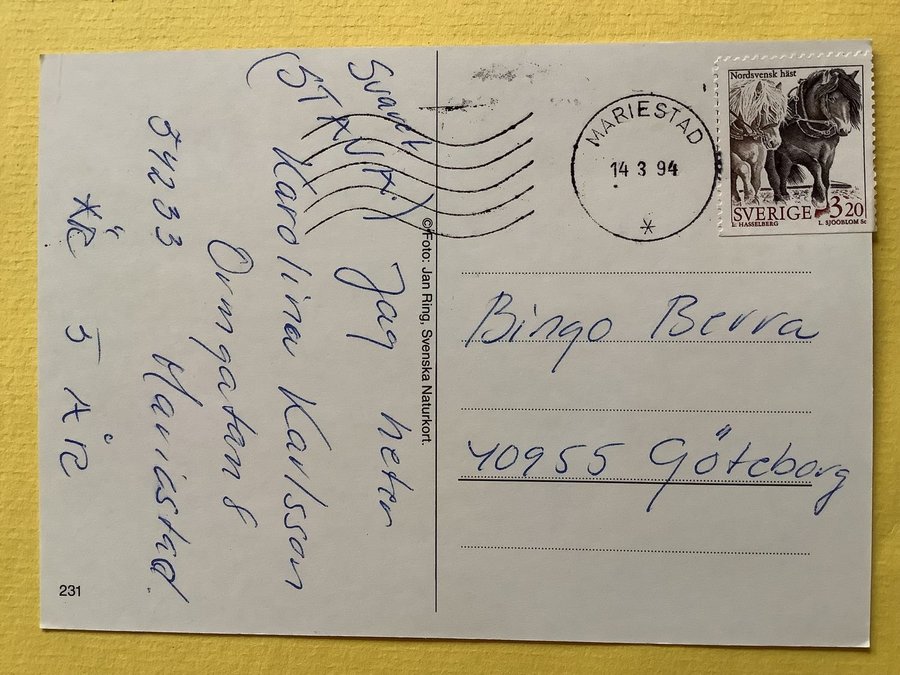 Nordsvensk häst
SVERIGE 3 20
E. HASSELBERG L. SJÖÖBLOM Sc
MARIESTAD
14 3 94
Bingo Berra
40955 Göteborg
©Foto: Jan Ring, Svenska Naturkort.
Jag heter
Karolina Karlsson
Ormgatan 8
54233 Mariestad
ÄR 5 ÅR
231